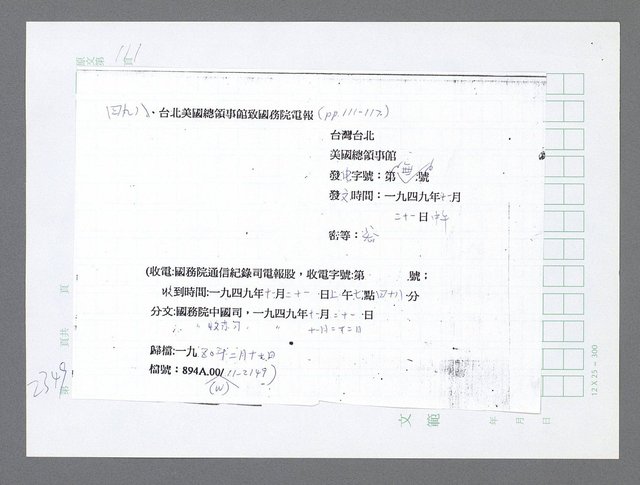 原文第 111 頁
四九八、台北美國總領事館致國務院電報 (pp.111-112)
台灣台北
美國總領事館
發電字號：第 無 號
發文時間：一九四九年十一月
二十一日 中午
密等：密
(收電:國務院通信紀錄司電報股，收電字號:第 號；
收到時間:一九四九年十一月二十一日上午七點四十八分
分文:國務院中國司，一九四九年十一月二十一日
十一月二十二日
歸檔:一九五0年二月十七日
檔號：894A.00/11-2149)
(W)
頁共 頁
第
2349
12 X 25 - 300
文 範
年 月 日